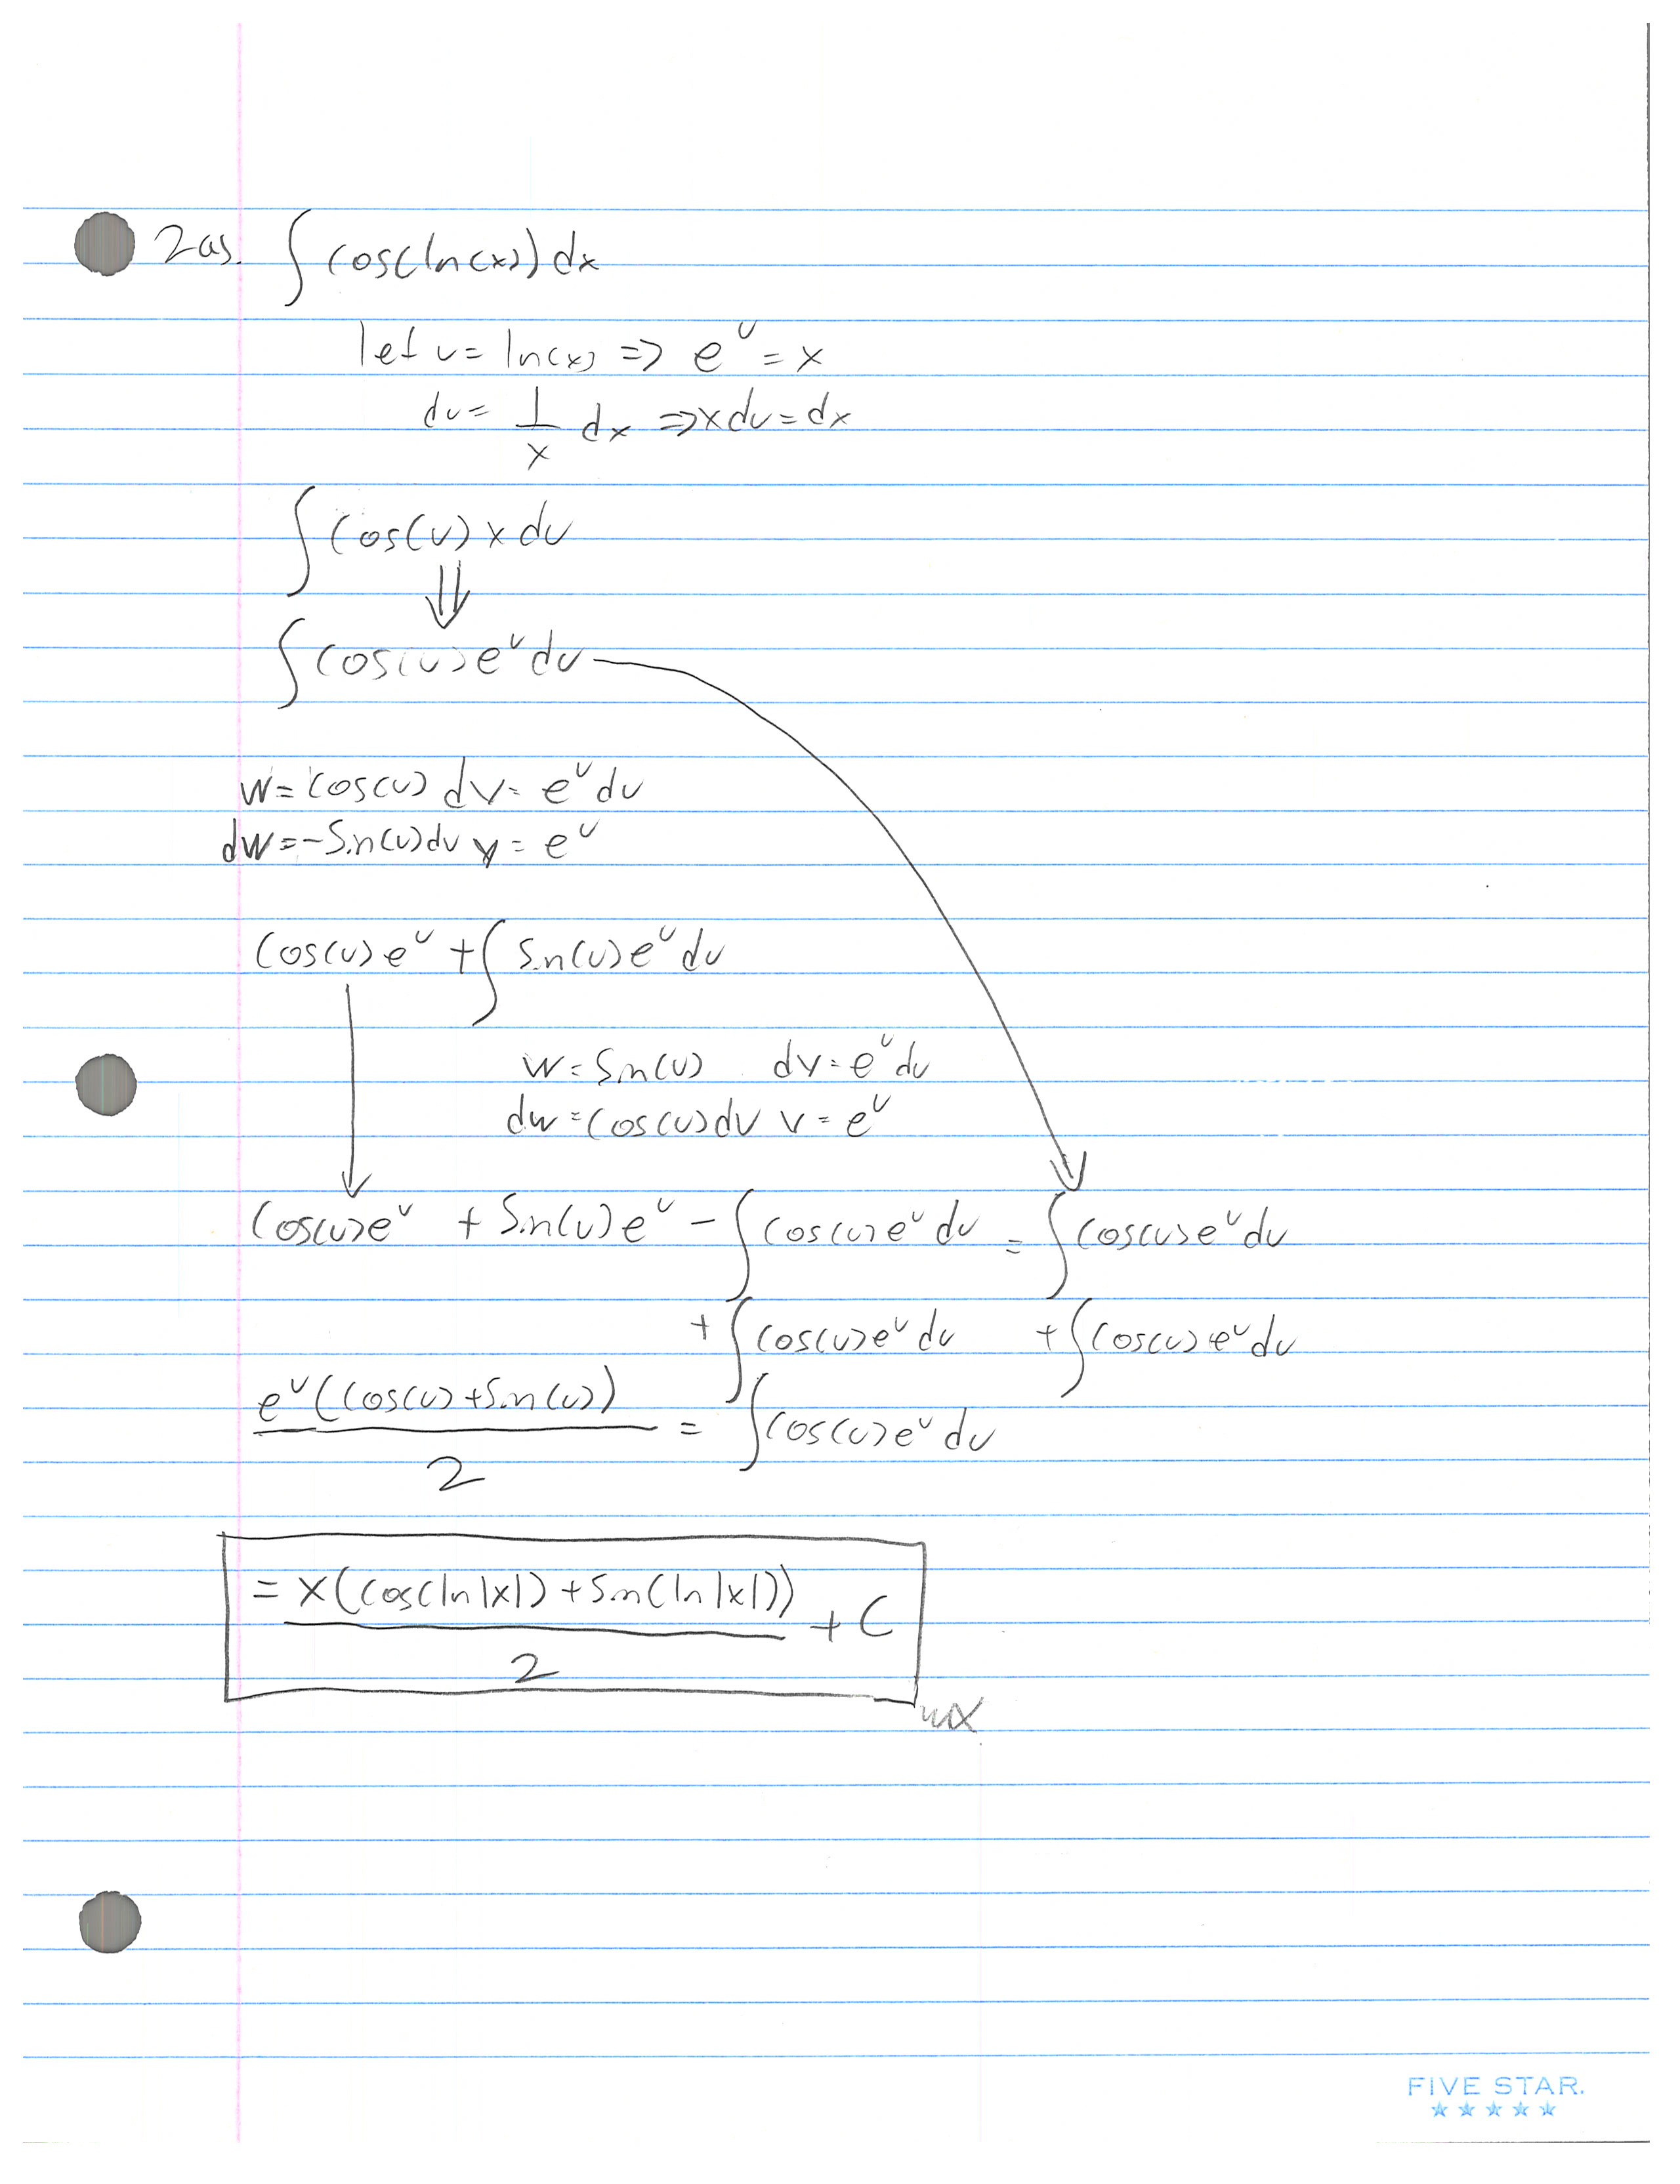 2as. ∫ cos(ln(x)) dx
let u = ln(x) => e^u = x
du = 1/x dx => x du = dx
∫ cos(u) x du
⇓
∫ cos(u) e^u du
w = cos(u) dv = e^u du
dw = -sin(u) du v = e^u
cos(u) e^u + ∫ sin(u) e^u du
w = sin(u) dv = e^u du
dw = cos(u) du v = e^u
cos(u) e^u + sin(u) e^u - ∫ cos(u) e^u du = ∫ cos(u) e^u du
+ ∫ cos(u) e^u du + ∫ cos(u) e^u du
e^u (cos(u) + sin(u)) / 2 = ∫ cos(u) e^u du
= x(cos(ln|x|) + sin(ln|x|)) / 2 + C
FIVE STAR.